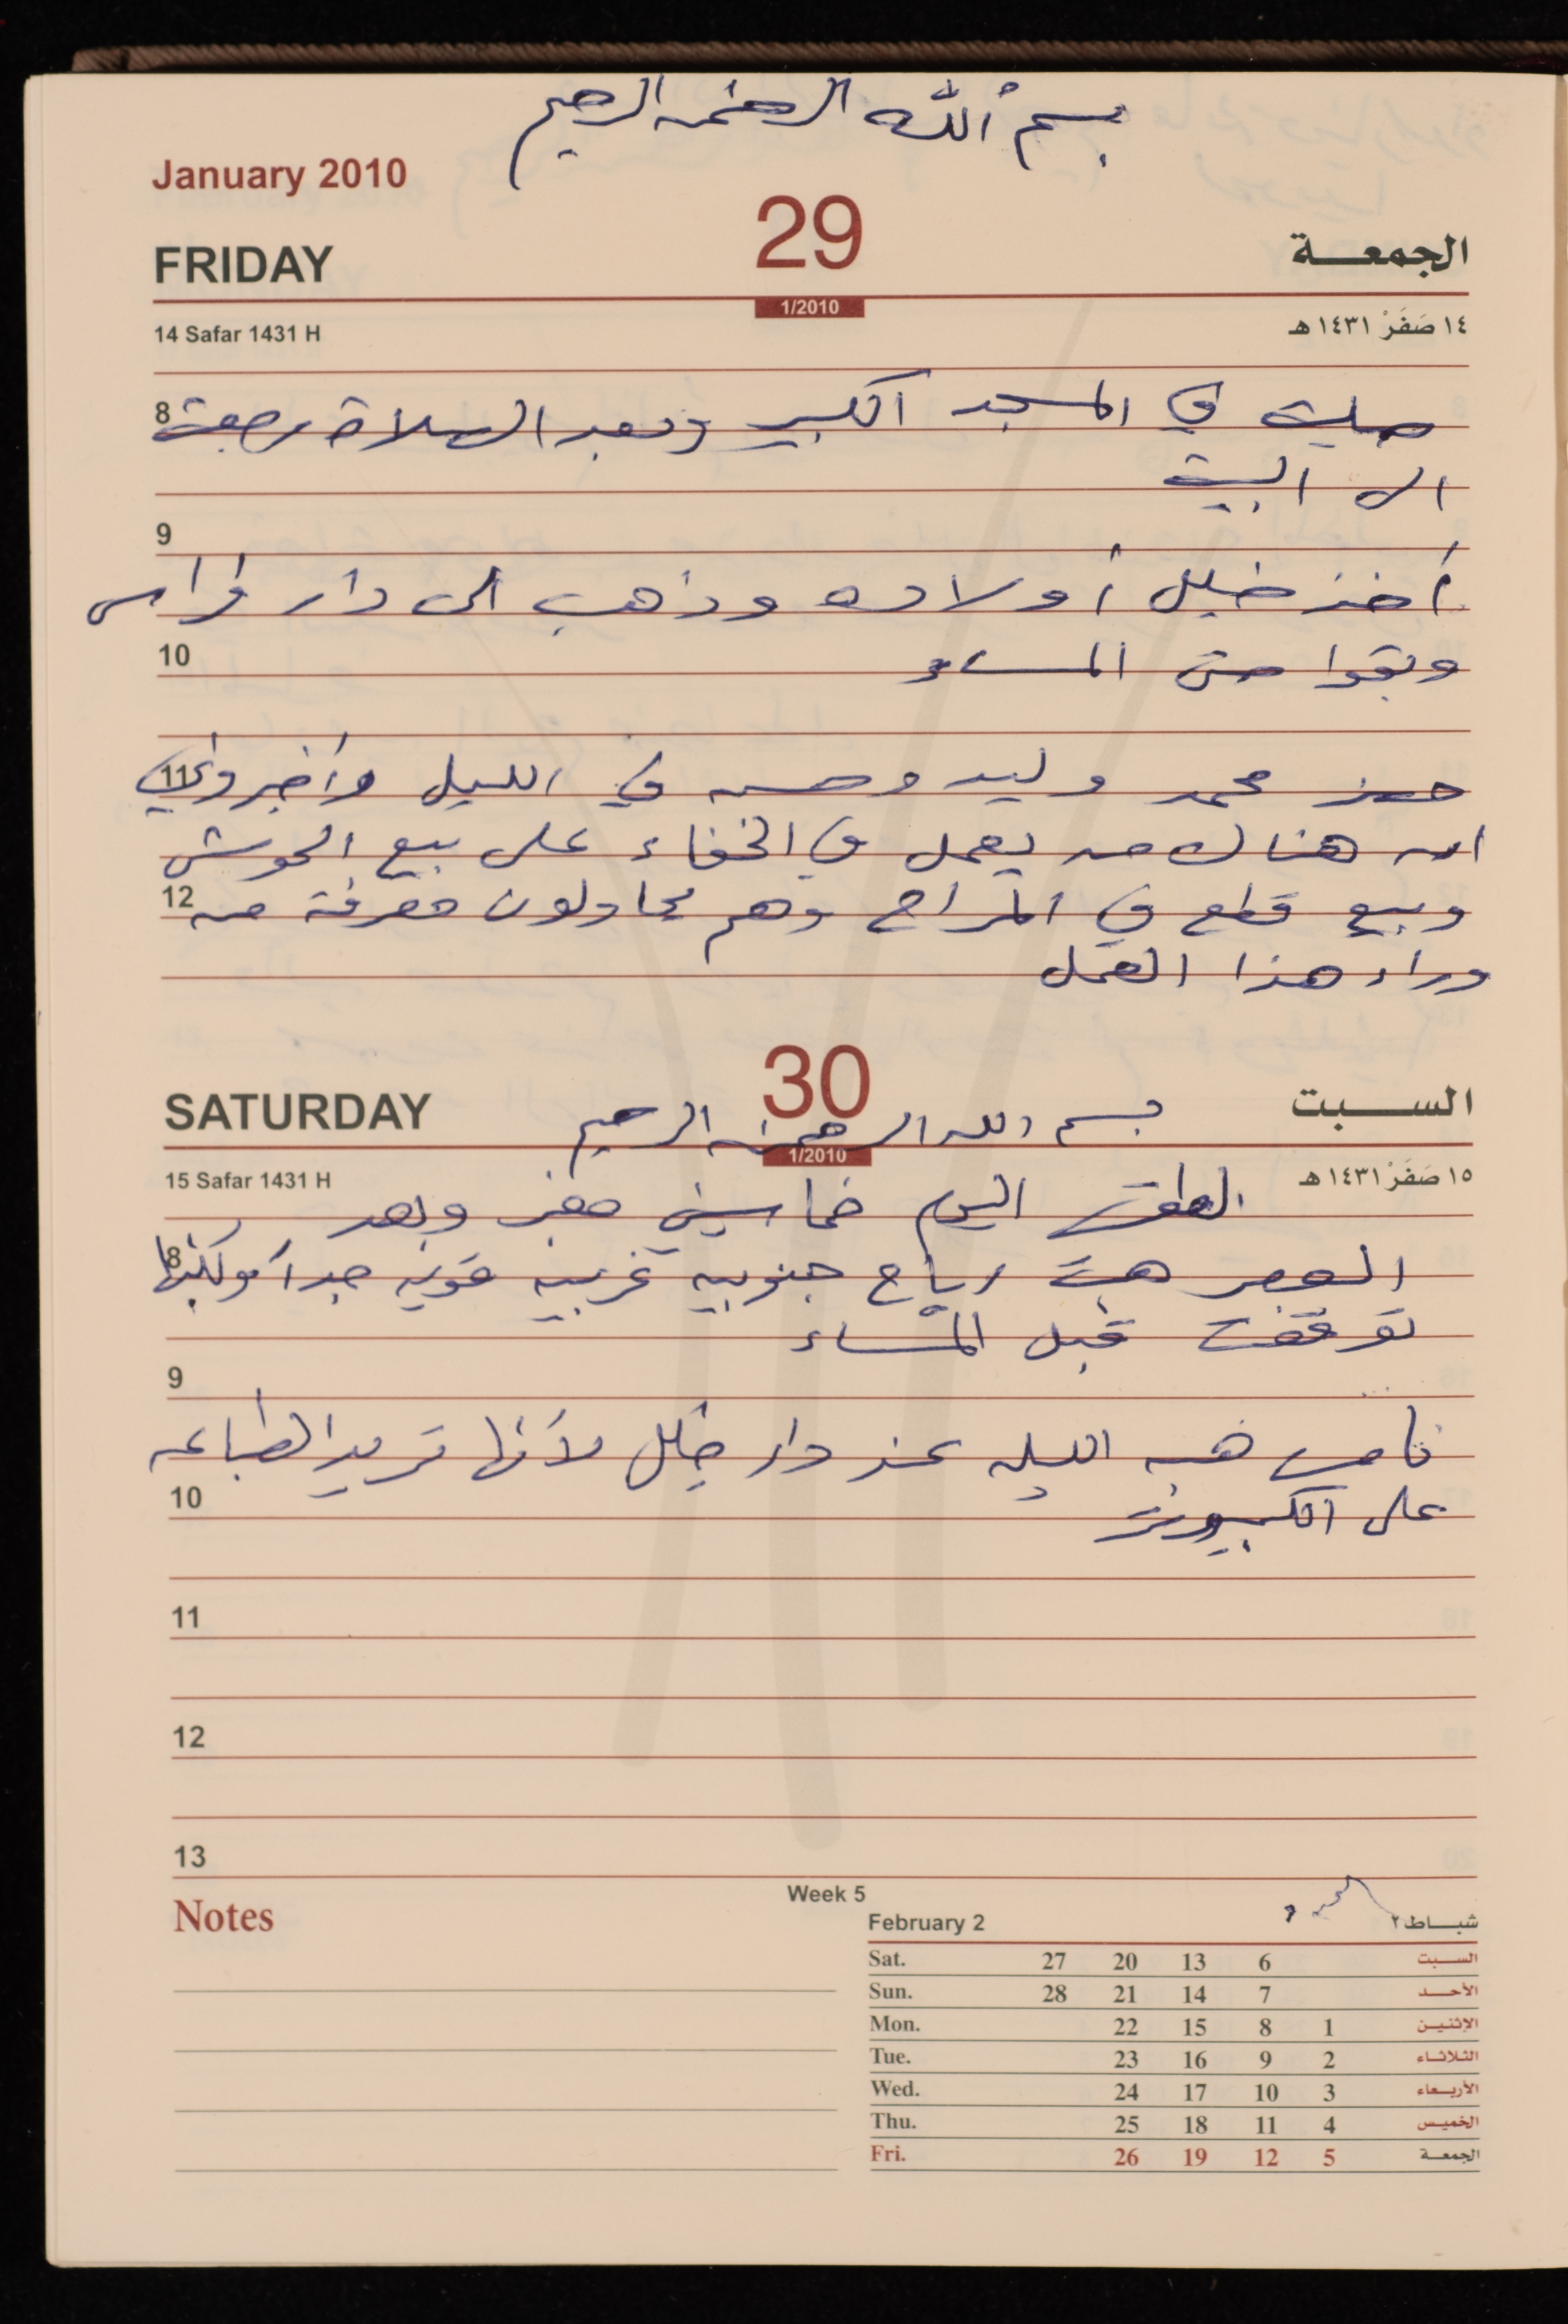 بسم الله الرحمن الرحيم
January 2010
FRIDAY 29 الجمعـــة
1/2010
14 Safar 1431 H ١٤ صَفَرْ ١٤٣١ هـ
8 صليت في المسجد الكبير وبعد الصلاة رجعت
الى البيت
9
أخذ خليل أولاده وذهب الى دار فراس
10 وبقوا حتى المساء
11 حضر محمد وليد وحسن في الليل وأخبروني
ان هناك من يعمل في الخفاء على بيع الحوش
12 وبيع قطع في المراح وهم يحاولون معرفة من
وراء هذا العمل
SATURDAY 30 السـبت
بسم الله الرحمن الرحيم
1/2010
15 Safar 1431 H ١٥ صَفَرْ ١٤٣١ هـ
الطقس اليوم خماسيني مغبر وبعد
8 العصر هبت رياح جنوبيه غربيه قويه جداً ولكنها
توقفت قبل المساء
9
نامت هبه الليله عند دار خليل لأنها تريد الطباعه
10 على الكمبيوتر
11
12
13
Notes
Week 5
February 2 شبـاط ٢
Sat. 27 20 13 6 السـبت
Sun. 28 21 14 7 الأحـد
Mon. 22 15 8 1 الإثنيـن
Tue. 23 16 9 2 الثـلاثـاء
Wed. 24 17 10 3 الأربـعاء
Thu. 25 18 11 4 الخميـس
Fri. 26 19 12 5 الجمعـة